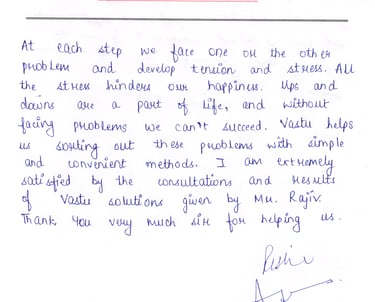 At each step we face one or the other
problem and develop tension and stress. All
the stress hinders our happiness. Ups and
downs are a part of life, and without
facing problems we can't succeed. Vastu helps
us sorting out these problems with simple
and convenient methods. I am extremely
satisfied by the consultations and results
of Vastu solutions given by Mr. Rajiv.
Thank you very much sir for helping us.